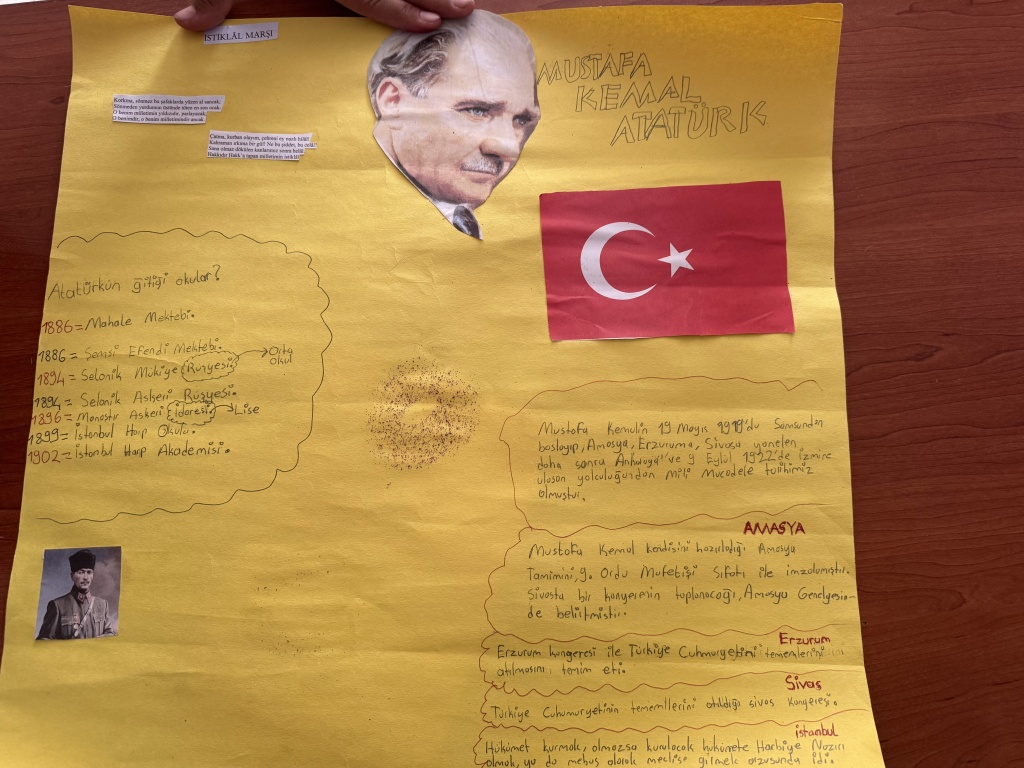 İSTİKLÂL MARŞI
MUSTAFA
KEMAL
ATATÜRK
Korkma, sönmez bu şafaklarda yüzen al sancak;
Sönmeden yurdumun üstünde tüten en son ocak.
O benim milletimin yıldızıdır, parlayacak;
O benimdir, o benim milletimindir ancak.
Çatma, kurban olayım, çehreni ey nazlı hilâl!
Kahraman ırkıma bir gül! Ne bu şiddet, bu celâl?
Sana olmaz dökülen kanlarımız sonra helâl.
Hakkıdır Hakk'a tapan milletimin istiklâl!
Atatürkün gitiği okular?
1886= Mahale Mektebi.
1886= Şemsi Efendi Mektebi.
1894= Selonik Mülkiye (Rüşyesi) → Orta
Okul
1894= Selonik Askeri Rüşyesi.
1896= Monastır Askeri (idaresi) → Lise
1899= İstanbul Harp Okulu.
1902= İstanbul Harp Akademisi.
Mustafa Kemalin 19 Mayıs 1919'du Samsundan
başlayıp, Amasya, Erzuruma, Sivasa yönelen
daha sonra ve 9 Eylül 1922'de İzmire
ulasan yolculuğundan Mili Mücadele tarihimiz
olmuştur.
AMASYA
Mustafa Kemal kendisini hazırladığı Amasya
Tamimini, 9. Ordu Mufetişi Sıfatı ile imzalamıştır.
Sivasta bir konyerenin toplanacağı, Amasya Genelgesin-
de belirtmiştir.
Erzurum
Erzurum kongeresi ile Türkiye Cuhmuryetini temenlerini
atılmasını temin eti.
Sivas
Türkiye Cuhumuryetinin tememllerini atıldığı sivas kongeresi.
istanbul
Hükümet kurmak, olmazsa kurulacak hükümete Harbiye Nazırı
olmak, ya da mebus olarak meclise girmek arzusunda idi.